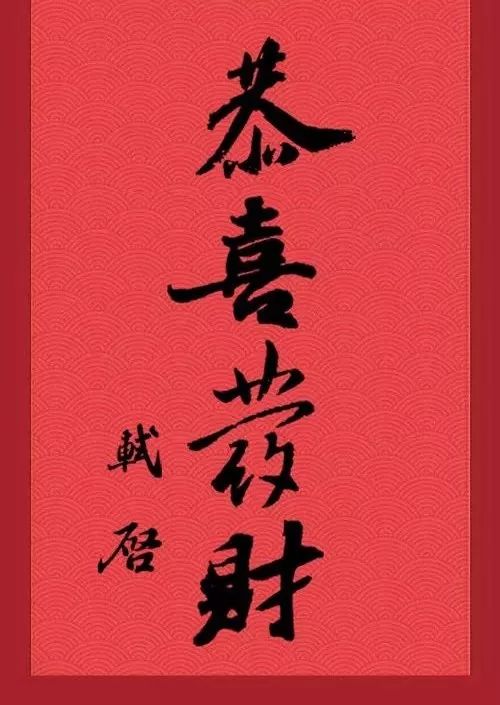 恭喜發財
軾啓